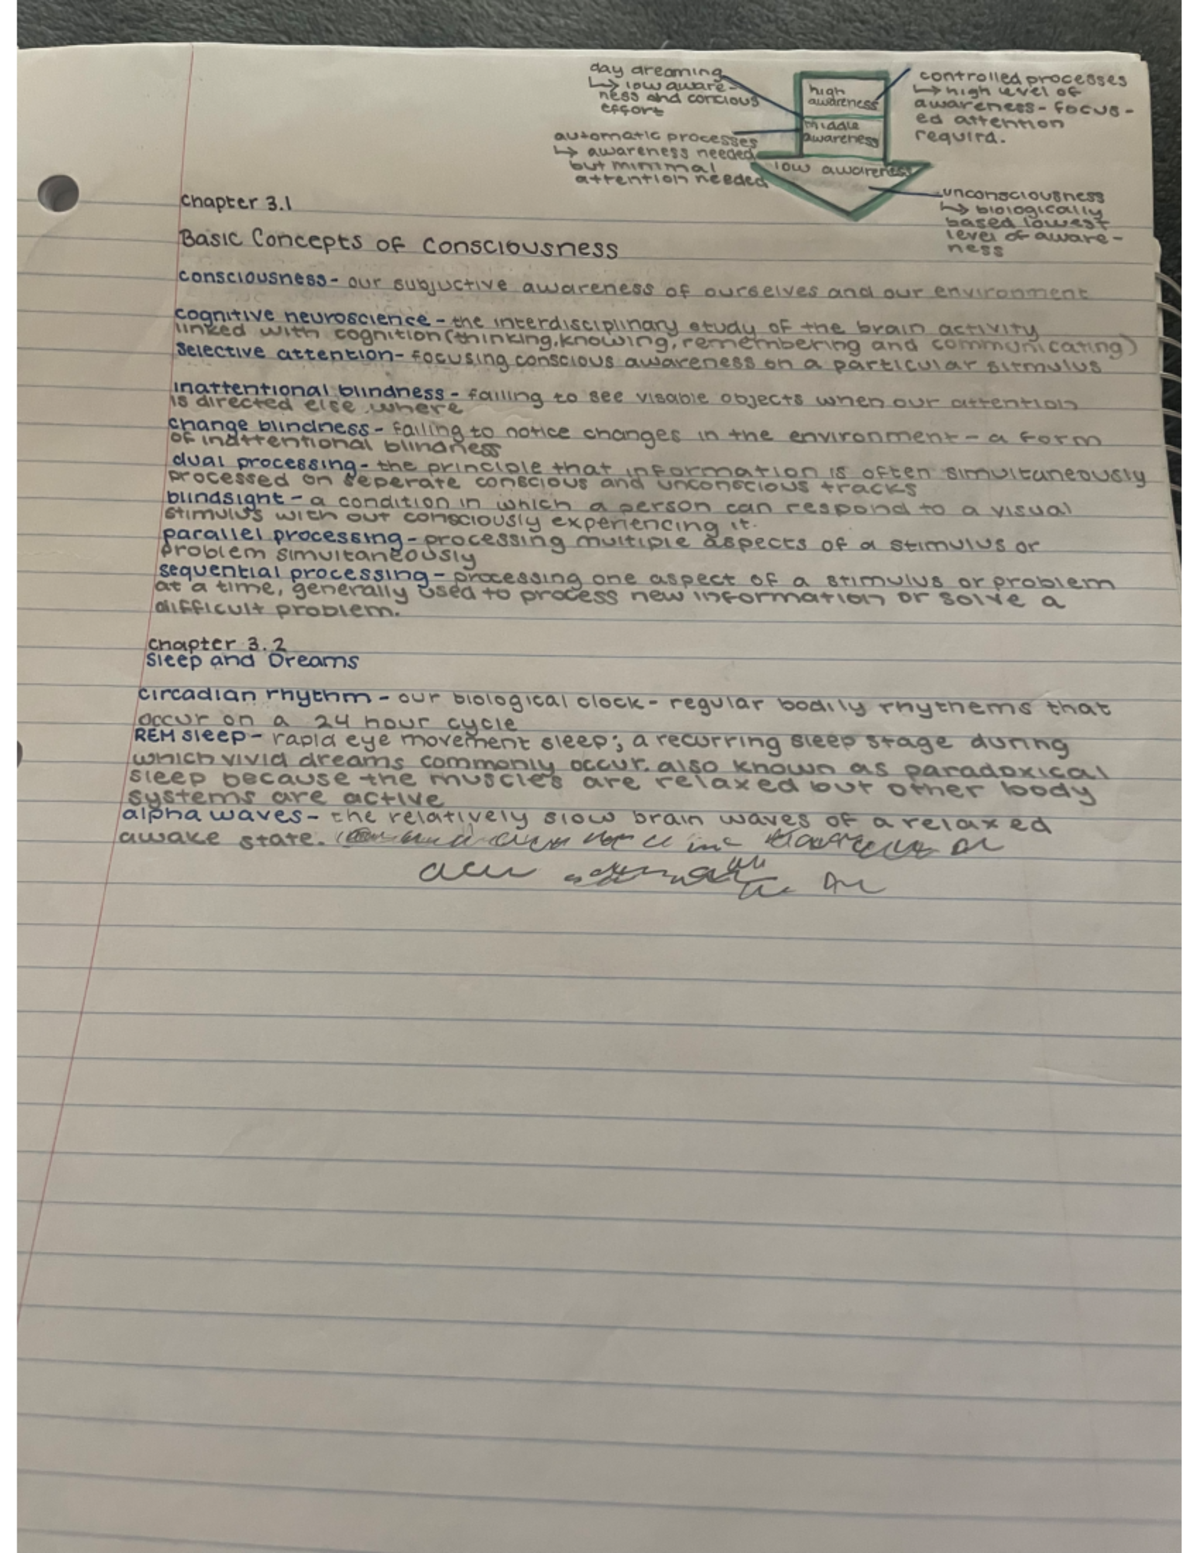 day dreaming
↳ low aware-
ness and concious
effort
automatic processes
↳ awareness needed
but minimal
attention needed
high
awareness
middle
awareness
low awareness
controlled processes
↳ high level of
awareness - focus-
ed attention
requird.
unconsciousness
↳ biologically
based lowest
level of aware-
ness
chapter 3.1
Basic Concepts of Consciousness
consciousness - our subjuctive awareness of ourselves and our environment
cognitive neuroscience - the interdisciplinary study of the brain activity
linked with cognition (thinking, knowing, remembering and communicating)
selective attention - focusing conscious awareness on a particular stimulus
inattentional blindness - failing to see visable objects when our attention
is directed else where
change blindness - failing to notice changes in the environment - a form
of inattentional blindness
dual processing - the principle that information is often simultaneously
processed on seperate conscious and unconscious tracks
blindsight - a condition in which a person can respond to a visual
stimulus with out consciously experiencing it.
parallel processing - processing multiple aspects of a stimulus or
problem simultaneously
sequential processing - processing one aspect of a stimulus or problem
at a time, generally used to process new information or solve a
difficult problem.
chapter 3.2
Sleep and Dreams
circadian rhythm - our biological clock - regular bodily rhythems that
occur on a 24 hour cycle
REM sleep - rapid eye movement sleep; a recurring sleep stage during
which vivid dreams commonly occur. also known as paradoxical
sleep because the muscles are relaxed but other body
systems are active
alpha waves - the relatively slow brain waves of a relaxed
awake state.